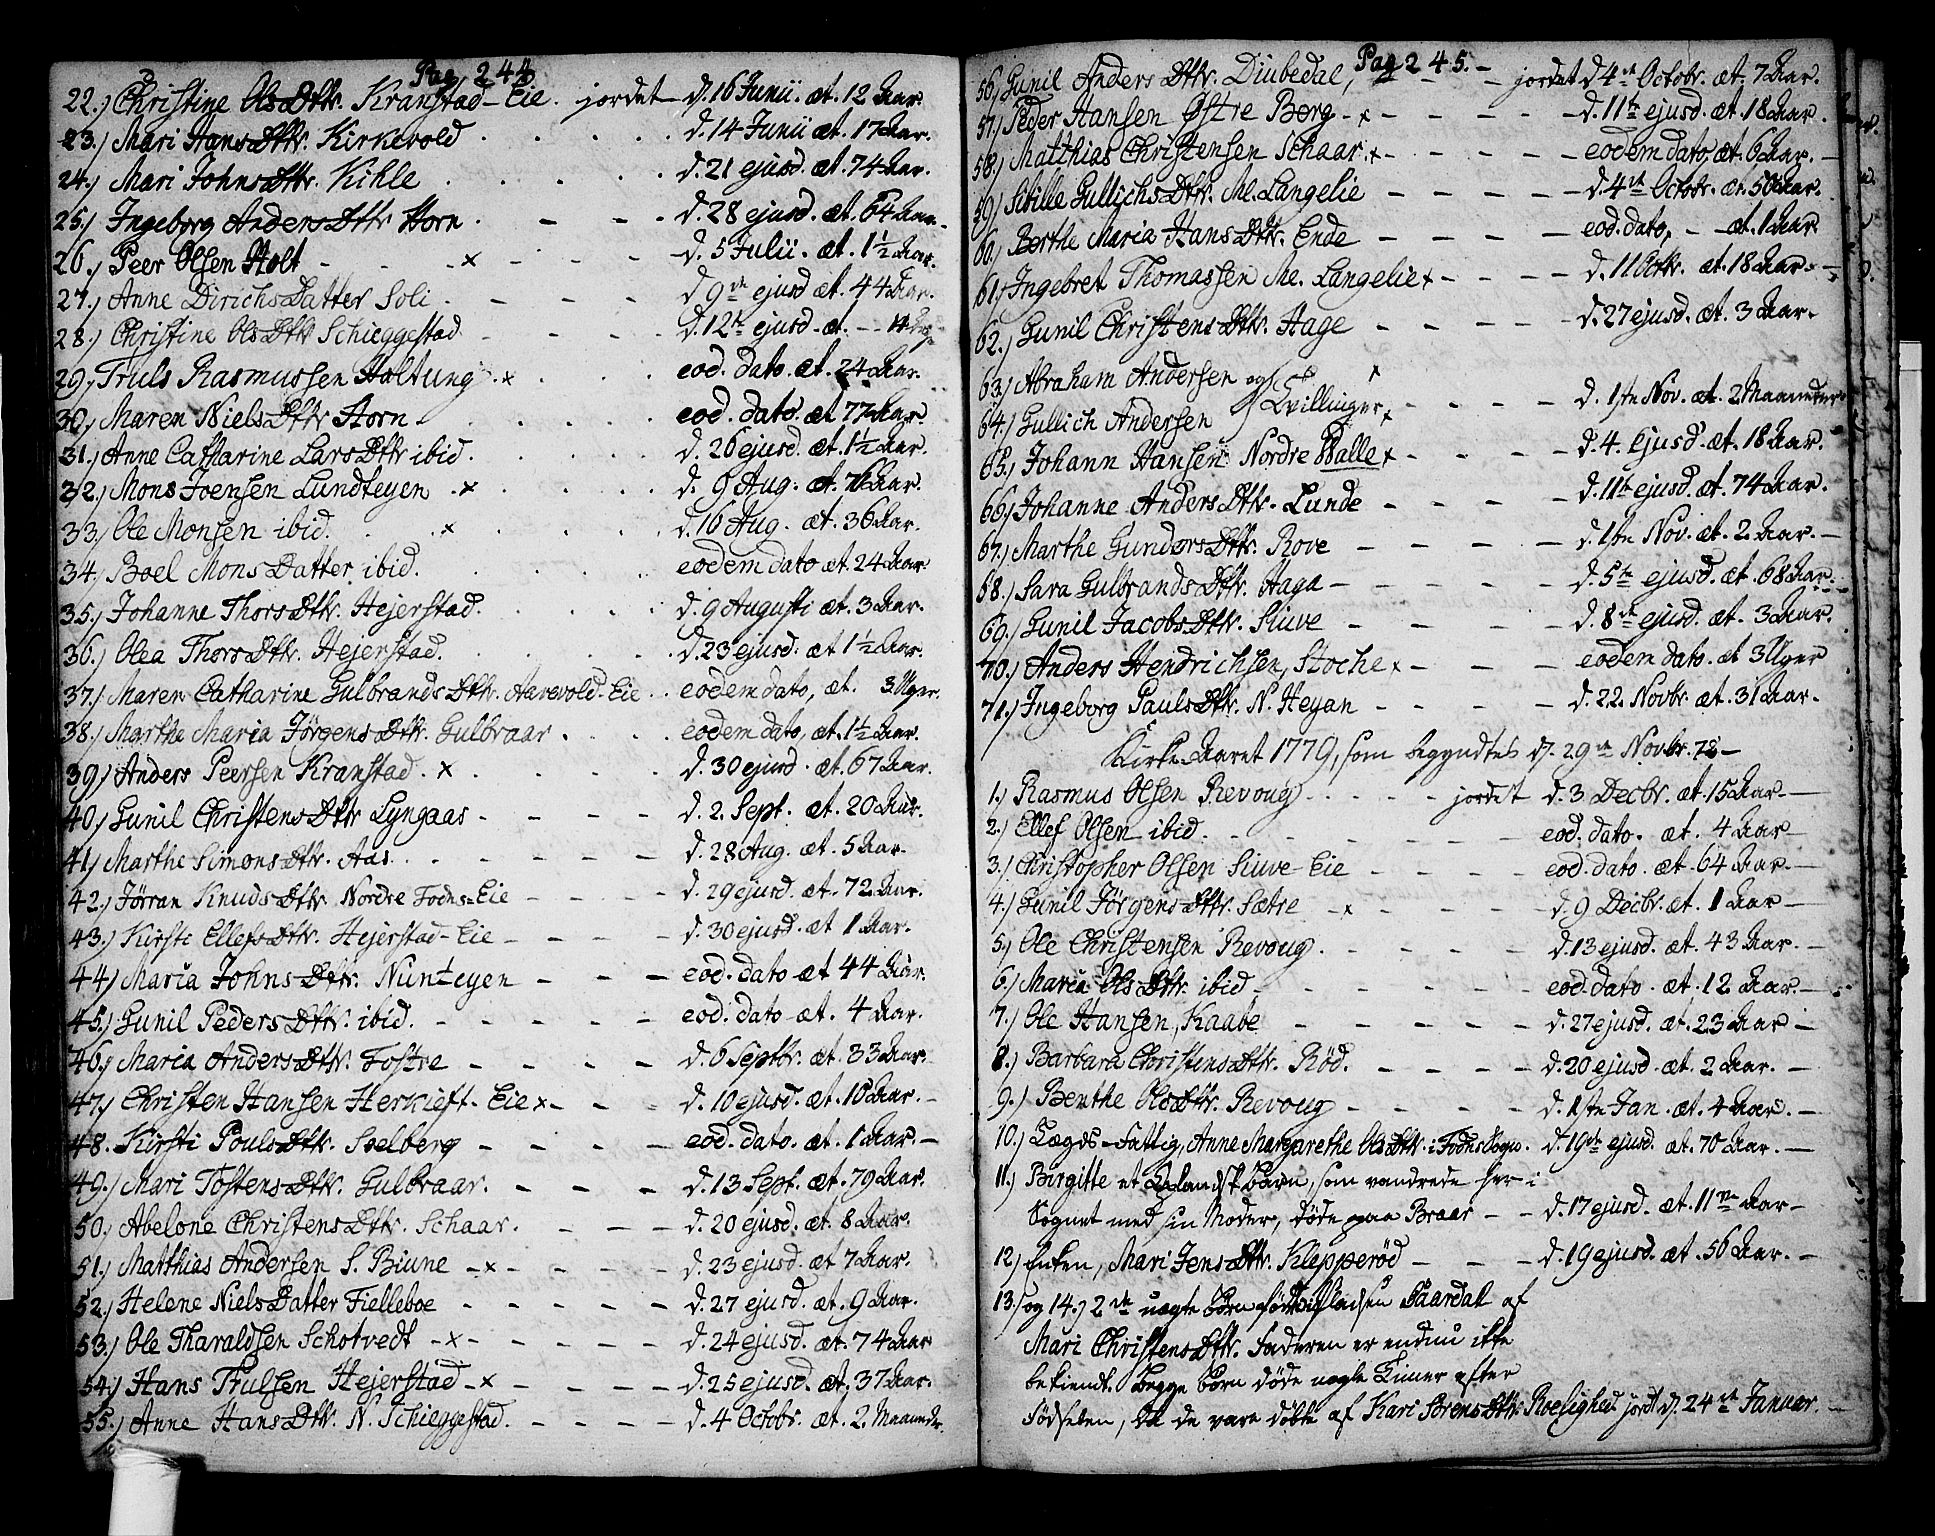 Pag. 244
22.) Christine OlsDttr. Kranstad-Eie. jordet d. 16 Junii. æt. 12 Aar.
23.) Mari HansDttr. Kirkevold d. 14 Junii æt. 17 Aar.
24.) Mari JohnsDttr. Kihle d. 21 ejusd. æt. 74 Aar.
25.) Ingeborg AndersDttr Horn d. 28 ejusd. æt. 64 Aar.
26.) Peer Olsen Holt x d. 5 Julii. æt. 1½ Aar.
27.) Anne DirichsDatter Soli d. 9de ejusd æt. 44 Aar.
28.) Christine OlsDttr Schieggestad d. 12te ejusd. æt.
29.) Truls Rasmussen Holtung x eod. dato. æt. 24 Aar.
30.) Maren NielsDttr Horn eod. dato. æt 77 Aar.
31.) Anne Catharine LarsDttr ibid. d. 26 ejusd. æt. 1½ Aar.
32.) Mons Joensen Lundteyen x d. 9 Aug. æt. 76 Aar.
33.) Ole Monsen ibid. x d. 16 Aug. æt. 36 Aar.
34.) Boel MonsDatter ibid. eodem dato æt. 24 Aar.
35.) Johanne ThorsDttr. Hejerstad. d. 9 Augusti æt. 3 Aar.
36.) Olea ThorsDttr. Hejerstad. d. 23 ejusd. æt 1½ Aar.
37.) Maren Catharine GulbrandsDttr. Harevold-Eie eodem dato, æt. 3 Uger.
38.) Marthe Maria JørgensDttr. Gulbraar eodem dato, æt. 1½ Aar.
39.) Anders Peersen Kranstad. x d. 30 ejusd. æt. 67 Aar.
40.) Gunil ChristensDttr Lyngaas d. 2. Sept. æt. 20 Aar.
41.) Marthe SimonsDttr. Aas. d. 28 Aug. æt. 5 Aar.
42.) Jørran KnudsDttr Nordre Fodns-Eie d. 29 ejusd. æt. 72 Aar.
43.) Kirsti EllefsDttr. Hejerstad-Eie d. 30 ejusd. æt 1 Aar.
44.) Maria JohnsDttr. Nünteyen eod. dato æt 44 Aar.
45.) Gunil PedersDttr. ibid. eod. dato æt. 4 Aar.
46.) Maria AndersDttr. Fostre d. 6 Septbr. æt. 33 Aar.
47.) Christen Hansen Herkieft-Eie x d. 10 ejusd. æt. 10 Aar.
48. Kirsti PoulsDttr. Sselberg eod. dato. æt. 1 Aar.
49.) Mari TostensDttr. Gulbraar. d. 13 Sept. æt. 79 Aar.
50.) Abelone ChristensDttr. Schaar. d. 20 ejusd. æt. 8 Aar.
51.) Matthias Andersen S. Biune x d. 23 ejusd. æt 7 Aar.
52.) Helene NielsDatter Fielleboe d. 27 ejusd. æt. 9 Aar.
53.) Ole Tharaldsen Schotvedt x d. 24 ejusd. æt. 74 Aar
54.) Hans Trulsen Hejerstad x d. 25 ejusd. æt. 37 Aar.
55.) Anne HansDttr. N. Schieggestad. d. 4 Octobr. æt. 2. Maaneder.
Pag 245.
56.) Gunil AndersDttr. Diubedal, jordet d. 4de Octobr. æt. 7 Aar.
57.) Peder Hansen Østre Berg x d. 11te ejusd. æt. 18 Aar.
58.) Matthias Christensen Schaar. x eodem dato, æt. 6 Aar.
59.) Sibille GullichsDttr. Me. Langelie d. 4de Octobr. æt. 50 Aar.
60.) Berthe Maria HansDttr. Ende eod. dato, æt. 1 Aar.
61.) Ingebret Thomassen Me. Langelie x d. 11 Octbr. æt. 18 Aar.
62.) Gunil ChristensDttr. Hage d. 27 ejusd. æt. 3 Aar.
63.) Abraham Andersen og x
64.) Gullich Andersen Tvillinger x d. 1ste Nov. æt. 2 Maaneder
65.) Johann Hansen Nordre Walle x d. 4. Ejusd. æt. 18 Aar.
66.) Johanne AndersDttr. Lunde d. 11te ejusd. æt. 74 Aar.
67.) Marthe GundersDttr. Rove d. 1ste Nov. æt. 2. Aar.
68.) Sara GulbrandsDttr. Haga d. 5te ejusd. æt. 68 Aar.
69.) Gunil JacobsDttr. Siuve d. 8de ejusd. æt. 3 Aar.
70.) Anders Hendrichsen, Stoche x eodem dato. æt 3 Uger
71.) Ingeborg PaulsDttr. N. Heyan d. 22. Novbr. æt. 31 Aar.
Kirke-Aaret 1779, som begyndtes d. 29de Novbr. 78
1.) Rasmus Olsen Revoug jordet d. 3 Decbr. æt. 15 Aar.
2.) Ellef Olsen ibid. eod. dato. æt. 4 Aar
3.) Christopher Olsen Siuve-Eie eod. dato. æt. 64 Aar.
4.) Gunil JørgensDttr. Sætre x d. 9 Decbr. æt. 1 Aar
5.) Ole Christensen Revoug. d. 13 ejusd. æt. 43 Aar.
6.) Maria OlsDttr. ibid. eod. dato. æt. 12 Aar.
7.) Ole Hansen, Kaabe d. 27 ejusd. æt. 23 Aar
8.) Barbara ChristensDttr. Rød. d. 20 ejusd. æt. 2 Aar.
9.) Benthe OlsDttr. Revoug d. 1ste Jan. æt. 4 Aar.
10.) Lægds-Fattig, Anne Margarethe OlsDttr. i Fodns Sogn. d. 19de ejusd. æt. 70 Aar.
11.) Birgitte et Barn, som vandrede her i
Sognet med sin Moder, døde paa Braar d. 17 ejusd. æt. 11 Aar
12.) Enken, Mari JensDttr. Klepperød d. 19 ejusd. æt. 56 Aar.
13.) og 14.) 2de uægte Børn fødte i Pladsen Saardal af
Mari ChristensDttr. Faderen er endnu ikke
bekiendt. Begge Børn døde nogle Timer efter
Fødselen, da de vare døbte af Kari SørensDttr. Roeslighed jordt d. 24de Januar.